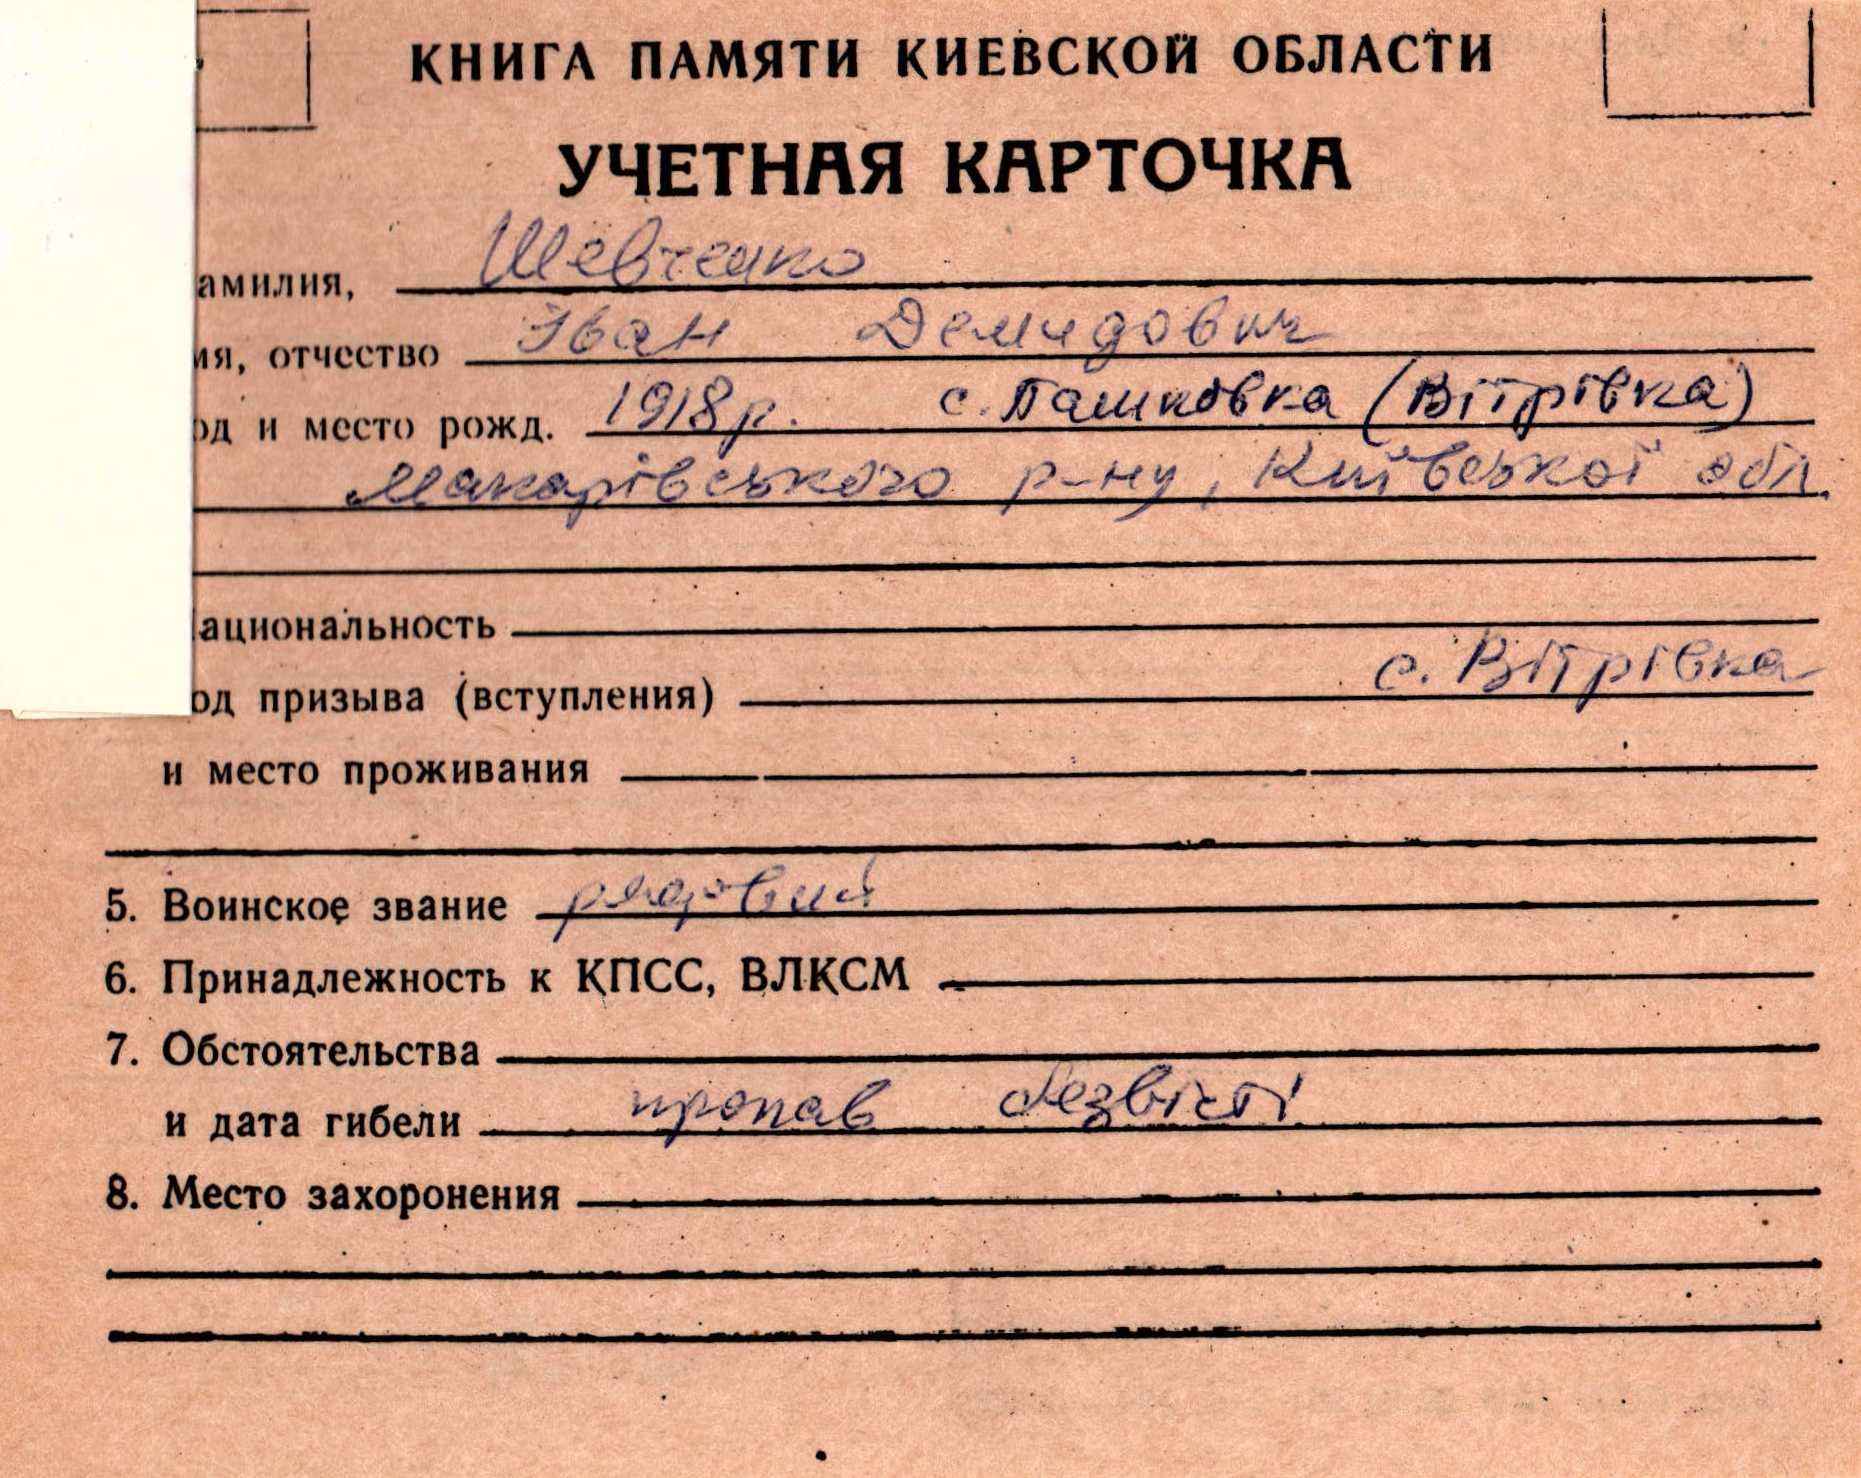 КНИГА ПАМЯТИ КИЕВСКОЙ ОБЛАСТИ
УЧЕТНАЯ КАРТОЧКА
амилия, Шевченко
ия, отчество Іван Демидович
од и место рожд. 1918р. с. Пашковка (Вітрівка)
Макарівського р-ну, Київської обл.
ациональность
од призыва (вступления) с. Вітрівка
и место проживания
5. Воинское звание рядовий
6. Принадлежность к КПСС, ВЛКСМ
7. Обстоятельства
и дата гибели пропав безвісті
8. Место захоронения